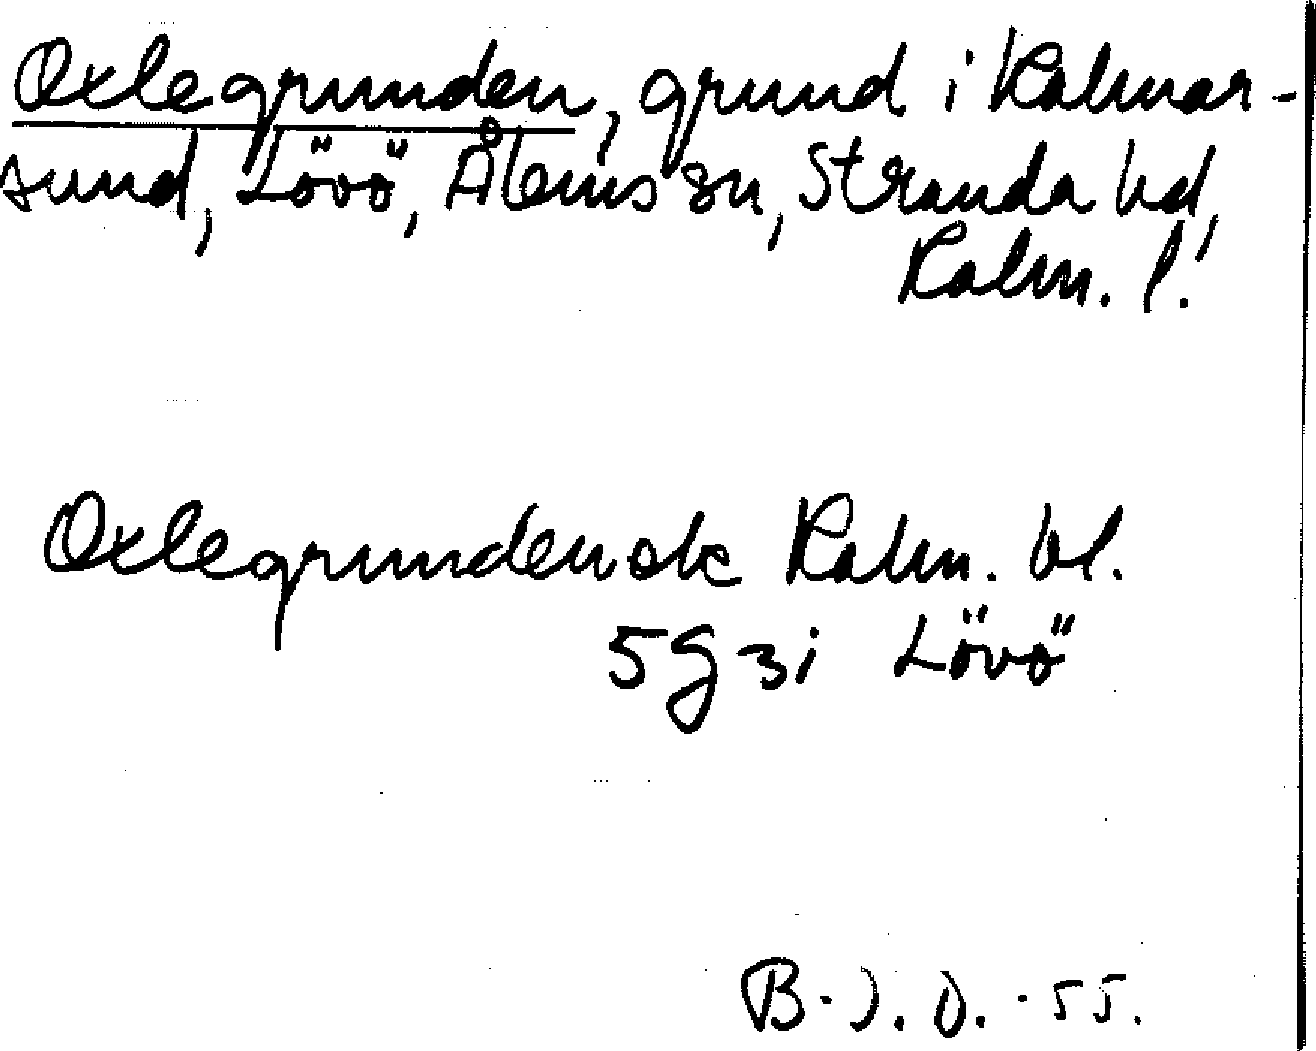 Oxlegrunden, grund i Kalmar-
sund, Lövö, Ålems sn, Stranda hd,
Kalm. l.
Oxlegrunden ek Kalm. bl.
5g3i Lövö
B-J. O. -55.